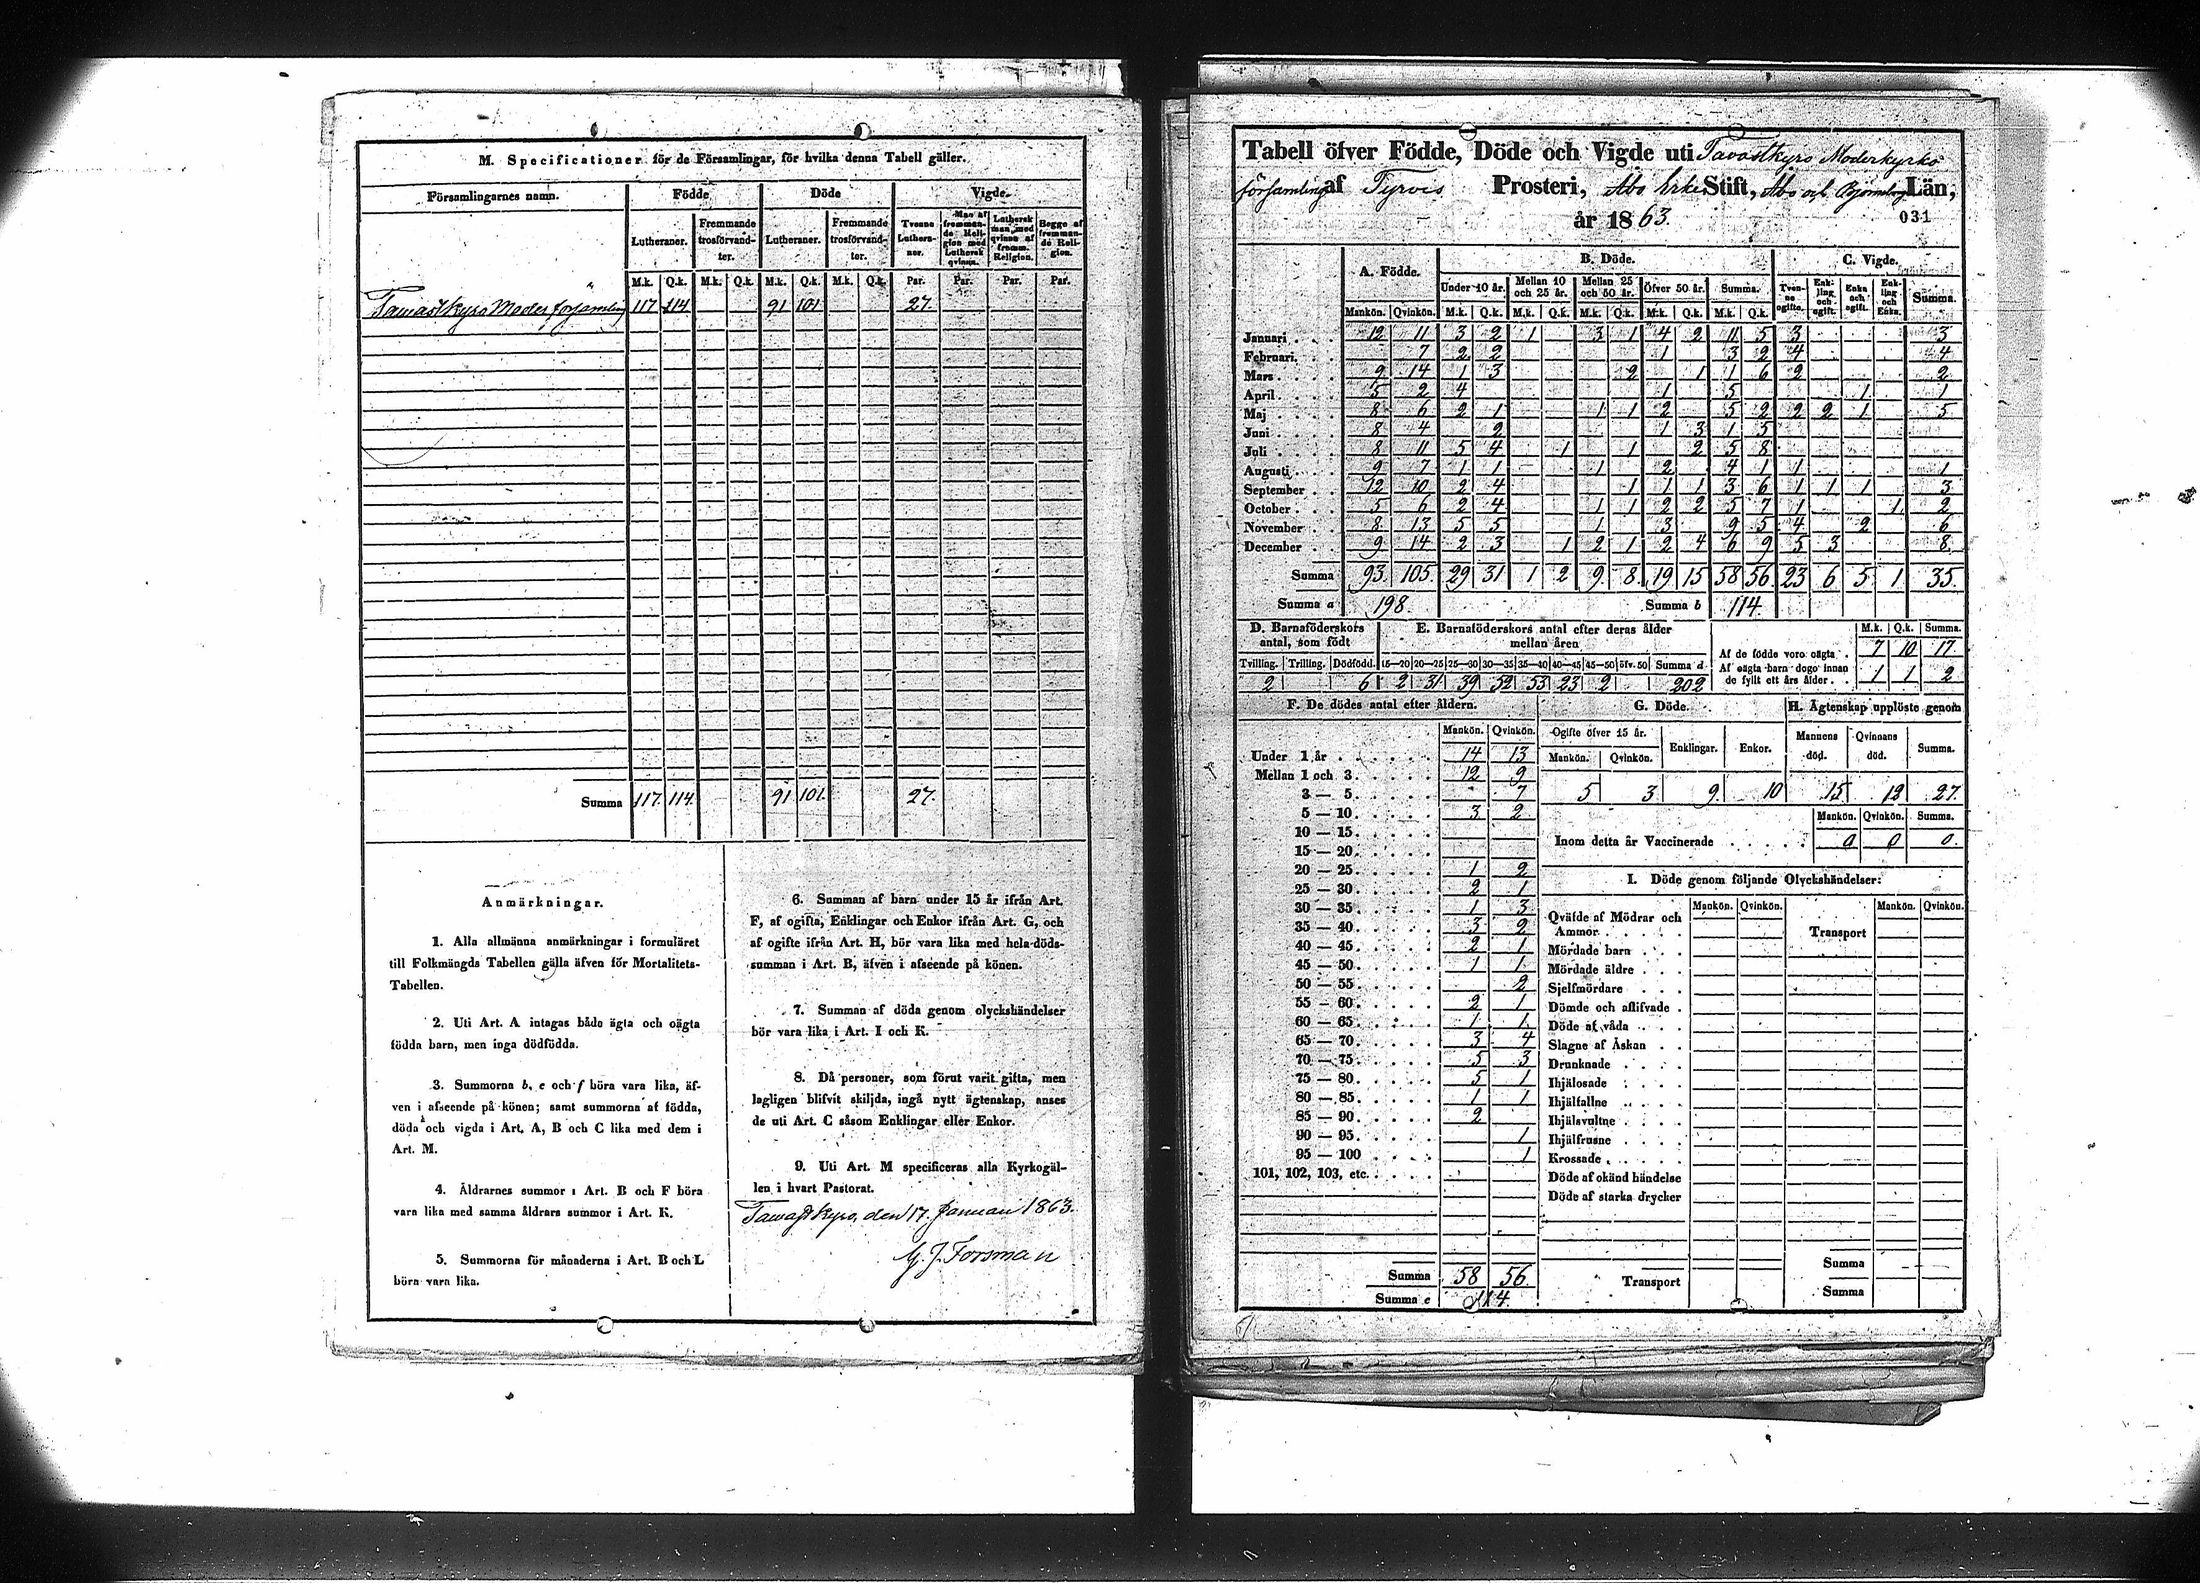 M. Specificationer för de Församlingar, för hvilka denna Tabell gäller.
Församlingarnes namn. Födde Döde Vigde.
Lutheraner. Fremmande trosförvandter. Lutheraner. Fremmande trosförvandter. Tvenne Lutheraner. Man af fremmande Religion med Luthersk qvinna. Luthersk man med qvinna af fremm. Religion. Begge af fremmande Religion.
M.k. Q.k. M.k. Q.k. M.k. Q.k. M.k. Q.k. Par. Par. Par. Par.
Tawastkyro Moder församling 117 114 91 101 27.
Summa 117. 114. 91 101. 27.
Anmärkningar.
1. Alla allmänna anmärkningar i formuläret
till Folkmängds Tabellen gälla äfven för Mortalitets-
Tabellen.
2. Uti Art. A intagas både ägta och oägta
födda barn, men inga dödfödda.
3. Summorna b, e och f böra vara lika, äf-
ven i afseende på könen; samt summorna af födda,
döda och vigda i Art. A, B och C lika med dem i
Art. M.
4. Åldrarnes summor i Art. B och F böra
vara lika med samma åldrars summor i Art. K.
5. Summorna för månaderna i Art. B och L
böra vara lika.
6. Summan af barn under 15 år ifrån Art.
F, af ogifta, Enklingar och Enkor ifrån Art. G, och
af ogifte ifrån Art. H, bör vara lika med hela döds-
summan i Art. B, äfven i afseende på könen.
7. Summan af döda genom olyckshändelser
bör vara lika i Art. I och K.
8. Då personer, som förut varit gifta, men
lagligen blifvit skiljda, ingå nytt ägtenskap, anses
de uti Art. C såsom Enklingar eller Enkor.
9. Uti Art. M specificeras alla Kyrkogäl-
len i hvart Pastorat.
Tawastkyro, den 17. Januari 1863.
G. J. Forsman
Tabell öfver Födde, Döde och Vigde uti Tavastkyro Moderkyrko
församling af Tyrvis Prosteri, Åbo Erke Stift, Åbo och Björneborgs Län,
år 1863. 031
A. Födde. B. Döde. C. Vigde.
Under 10 år. Mellan 10 och 25 år. Mellan 25 och 50 år. Öfver 50 år. Summa. Tvenne ogifte. Enkling och ogift. Enka och ogift. Enkling och Enka. Summa.
Mankön. Qvinkön. M.k. Q.k. M.k. Q.k. M.k. Q.k. M.k. Q.k. M.k. Q.k.
Januari 12 11 3 2 1 3 1 4 2 11 5 3 3
Februari. 7 2 2 1 3 2 4 4
Mars 9 14 1 3 2 1 1 6 2 2
April 5 2 4 1 5 1 1
Maj 8 6 2 1 1 1 2 5 2 2 2 1 5
Juni 8 4 2 1 3 1 5
Juli 8 11 5 4 1 1 2 5 8
Augusti 9 7 1 1 1 2 4 1 1 1
September 12 10 2 4 1 1 1 3 6 1 1 1 3
October 5 6 2 4 1 1 2 2 5 7 1 1 2
November 8 13 5 5 1 3 9 5 4 2 6
December 9 14 2 3 1 2 1 2 4 6 9 5 3 8
Summa 93. 105. 29. 31 1 2 9. 8. 19 15 58 56 23 6 5 1 35.
Summa a 198 Summa b 114.
D. Barnaföderskors antal, som födt
E. Barnaföderskors antal efter deras ålder mellan åren
M.k. Q.k. Summa.
Tvilling. Trilling. Dödfödd. 15—20 20—25 25—30 30—35 35—40 40—45 45—50 öfv. 50 Summa d
2 6 2 31 39 52 53 23 2 202
Af de födde voro oägta 7 10 17
Af oägta barn dogo innan
de fyllt ett års ålder 1 1 2
F. De dödes antal efter åldern.
Mankön. Qvinkön.
Under 1 år 14 13
Mellan 1 och 3 12 9
3 — 5 7
5 — 10 3 2
10 — 15
15 — 20
20 — 25 1 2
25 — 30 2 1
30 — 35 1 3
35 — 40 3 2
40 — 45 2 1
45 — 50 1 1
50 — 55 2
55 — 60 2 1
60 — 65 1 1
65 — 70 3 4
70 — 75 5 3
75 — 80 5 1
80 — 85 1 1
85 — 90 2
90 — 95 1
95 — 100 1
101, 102, 103, etc.
Summa 58 56.
Summa e 114.
G. Döde. H. Ägtenskap upplöste genom
Ogifte öfver 15 år. Enklingar. Enkor. Mannens död. Qvinnans död. Summa.
Mankön. Qvinkön.
5 3 9 10 15 12 27.
Mankön. Qvinkön. Summa.
Inom detta år Vaccinerade 0 0 0.
I. Döde genom följande Olyckshändelser:
Mankön. Qvinkön. Mankön. Qvinkön.
Qväfde af Mödrar och
Ammor Transport
Mördade barn
Mördade äldre
Sjelfmördare
Dömde och aflifvade
Döde af våda
Slagne af Åskan
Drunknade
Ihjälosade
Ihjälfallne
Ihjälsvultne
Ihjälfrusne
Krossade
Döde af okänd händelse
Döde af starka drycker
Transport
Summa
Summa